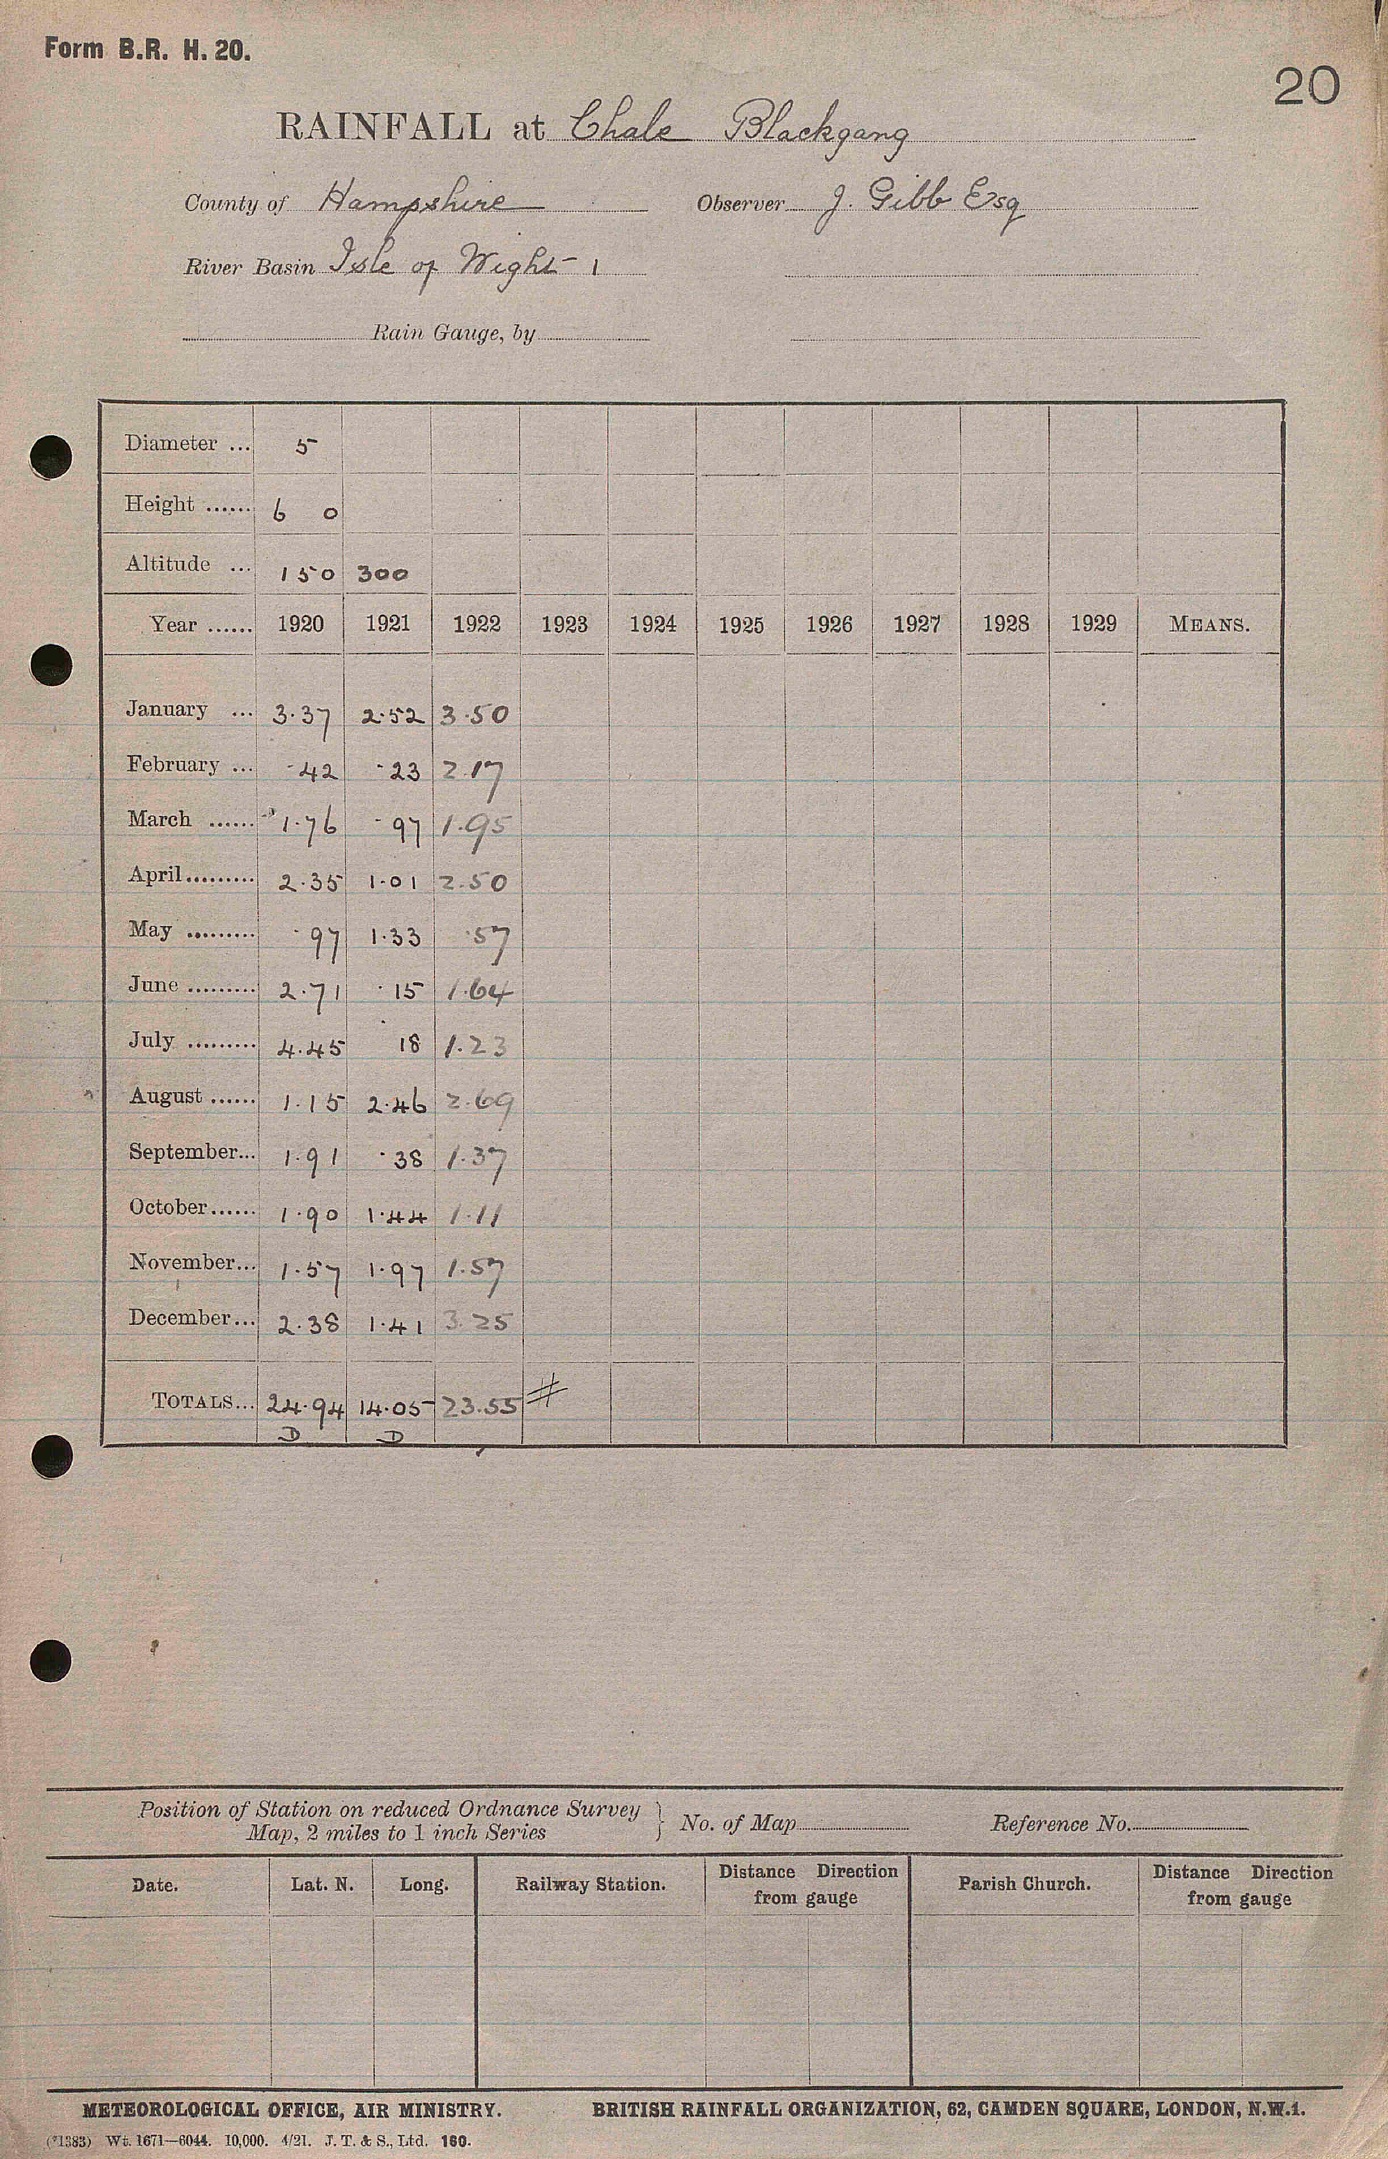 Form B.R. H. 20.
20
RAINFALL at Chale Blackgang
County of Hampshire Observer J. Gibb Esq
River Basin Isle of Wight 1
Rain Gauge, by
Diameter ... 5
Height ...... 6 0
Altitude ... 150 300
Year ...... 1920 1921 1922 1923 1924 1925 1926 1927 1928 1929 MEANS.
January ... 3.37 2.52 3.50
February ... .42 .23 2.17
March ...... 1.76 .97 1.95
April ......... 2.35 1.01 2.50
May ......... .97 1.33 .57
June ......... 2.71 .15 1.64
July ......... 4.45 .18 1.23
August ...... 1.15 2.46 2.69
September... 1.91 .38 1.37
October...... 1.90 1.44 1.11
November... 1.57 1.97 1.57
December... 2.38 1.41 3.25
TOTALS... 24.94 14.05 23.55 #
D D
Position of Station on reduced Ordnance Survey
Map, 2 miles to 1 inch Series } No. of Map Reference No.
Date. Lat. N. Long. Railway Station. Distance Direction from gauge Parish Church. Distance Direction from gauge
METEOROLOGICAL OFFICE, AIR MINISTRY. BRITISH RAINFALL ORGANIZATION, 62, CAMDEN SQUARE, LONDON, N.W.1.
(*1383) Wt. 1671—6044. 10,000. 4/21. J. T. & S., Ltd. 160.